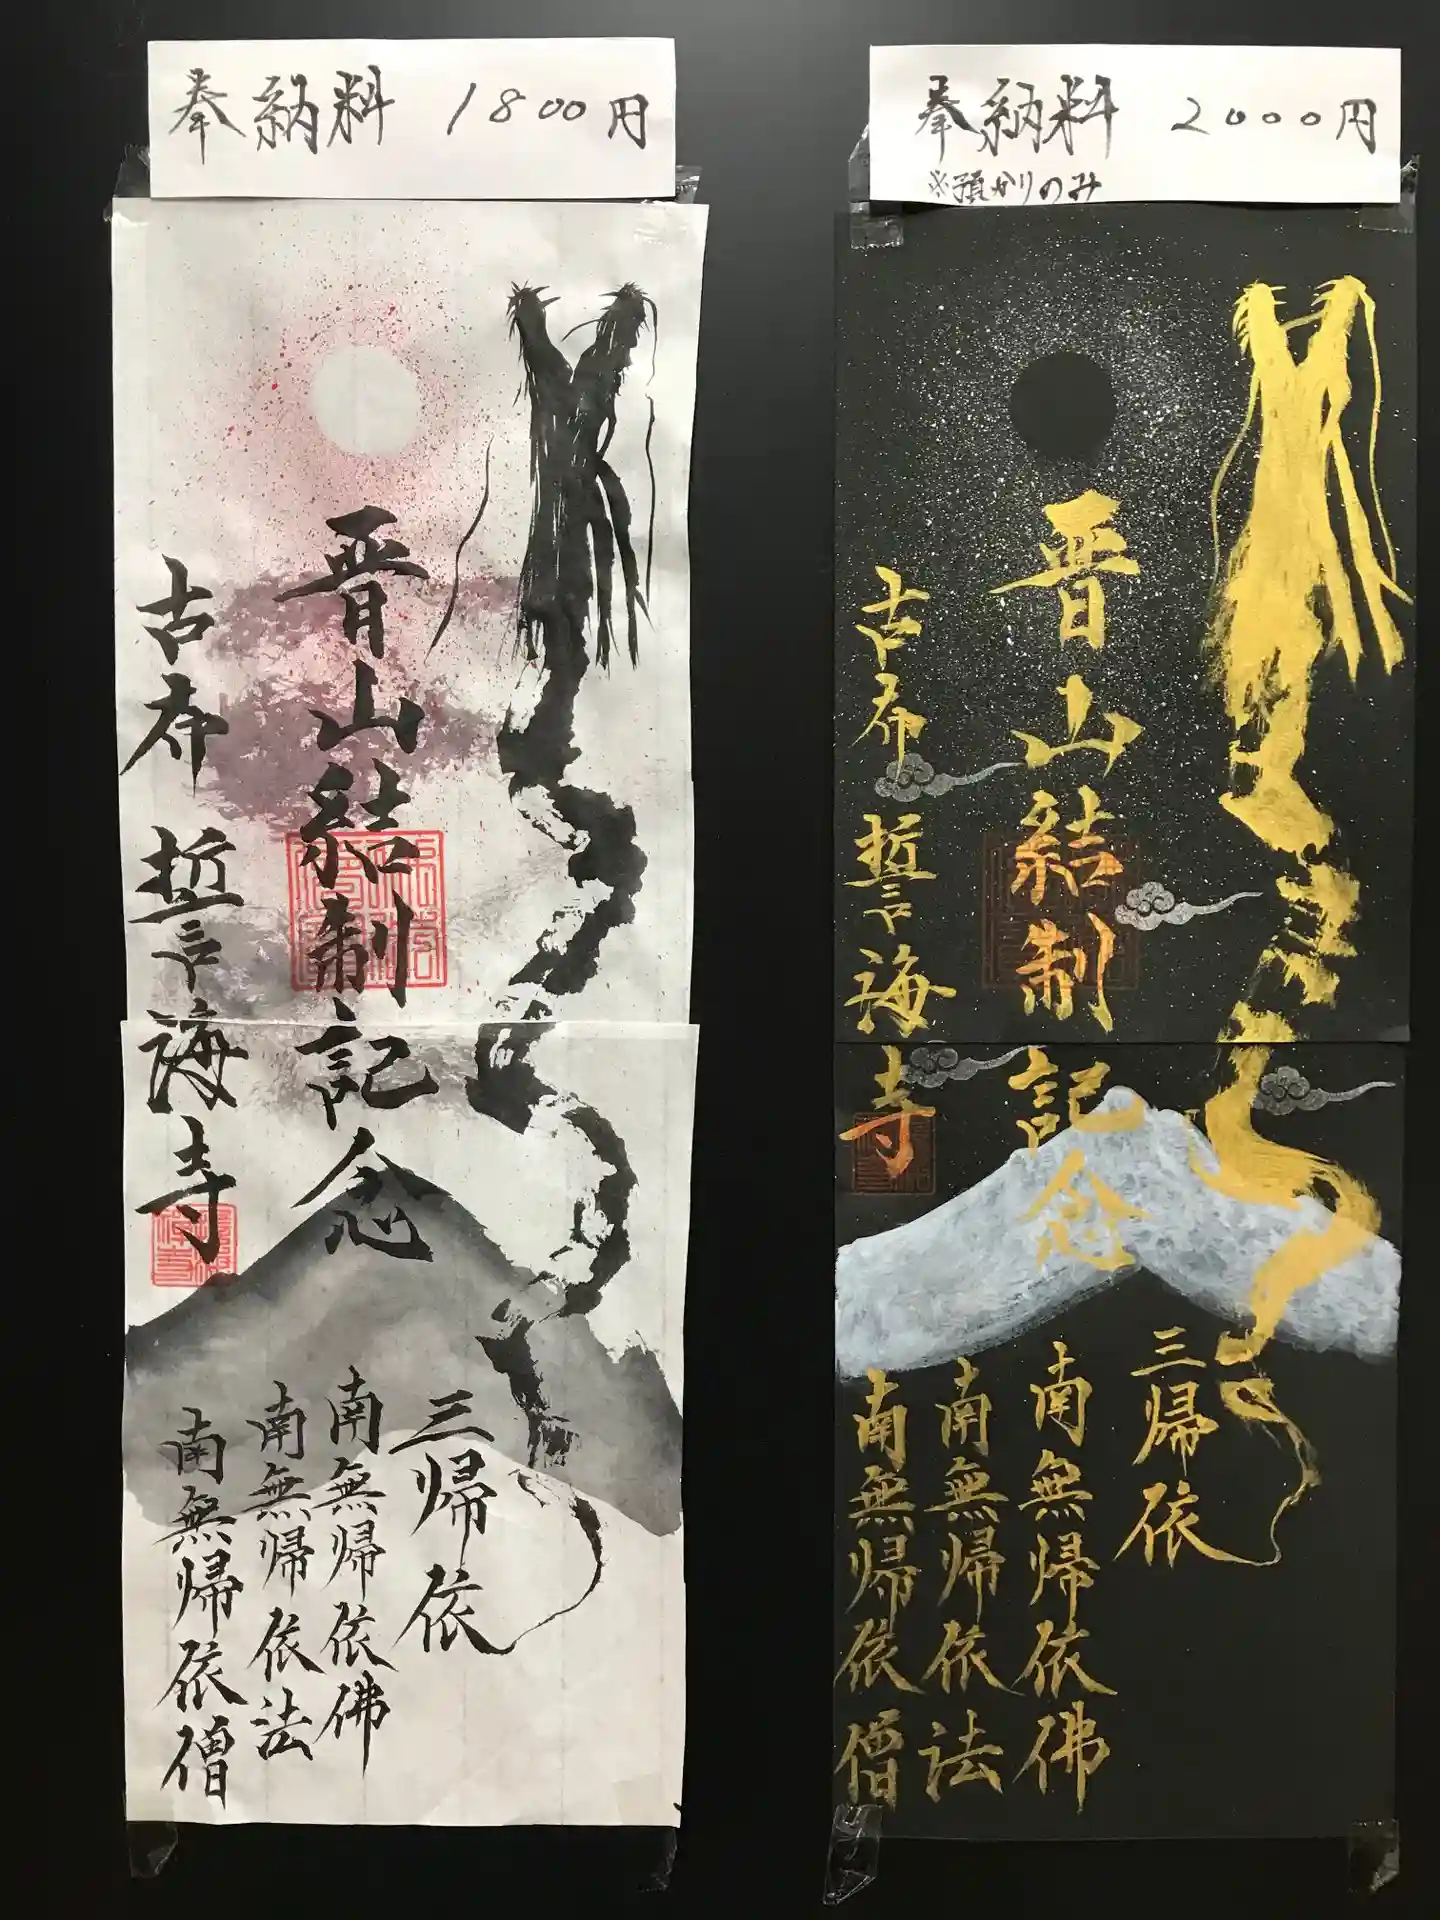 奉納料 1800円
晋山結制記念
古布 誓海寺
三帰依
南無帰依佛
南無帰依法
南無帰依僧
奉納料 2000円
※預かりのみ
晋山結制記念
古布 誓海寺
三帰依
南無帰依佛
南無帰依法
南無帰依僧